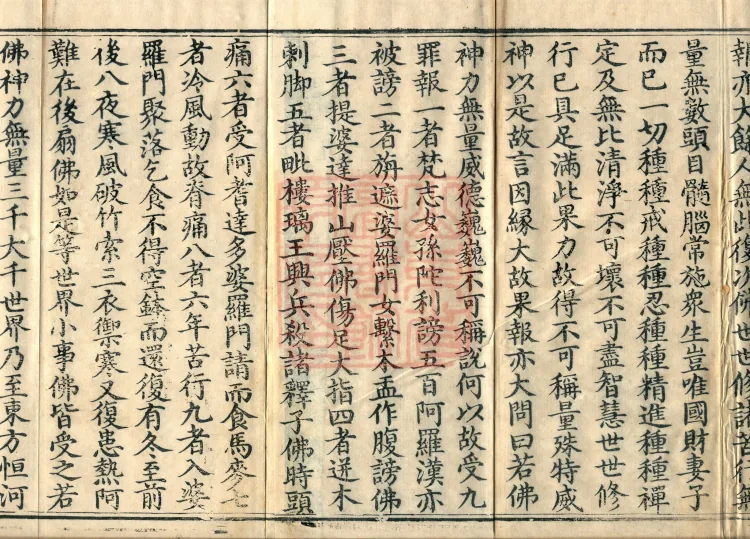 報亦大餘人無此復次佛世世修諸苦行無
量無數頭目髓腦常施眾生豈唯國財妻子
而已一切種種戒種種忍種種精進種種禪
定及無比清淨不可壞不可盡智慧世世修
行已具足滿此果力故得不可稱量殊特威
神以是故言因緣大故果報亦大問曰若佛
神力無量威德巍巍不可稱說何以故受九
罪報一者梵志女孫陀利謗五百阿羅漢亦
被謗二者旃遮婆羅門女繫木盂作腹謗佛
三者提婆達推山壓佛傷足大指四者迸木
刺脚五者毗樓璃王興兵殺諸釋子佛時頭
痛六者受阿耆達多婆羅門請而食馬麥七
者冷風動故脊痛八者六年苦行九者入婆
羅門聚落乞食不得空鉢而還復有冬至前
後八夜寒風破竹索三衣禦寒又復患熱阿
難在後扇佛如是等世界小事佛皆受之若
佛神力無量三千大千世界乃至東方恒河